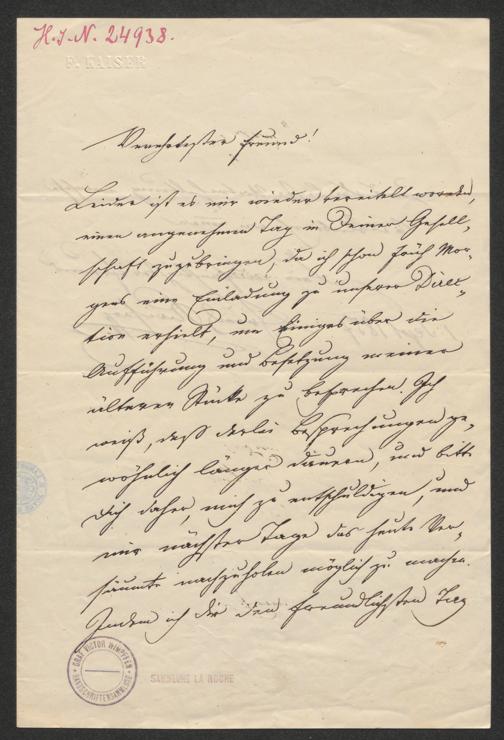 H.I.N. 24938.
F. KAISER
Verehrtester Freund!
Leider ist es mir wieder vereitelt worden,
einen angenehmen Tag in Deiner Gesell-
schaft zuzubringen, da ich schon früh Mor-
gens eine Einladung zu unserer Direc-
tion erhielt, um Einiges über die
Aufführung und Besetzung meiner
älteren Stücke zu besprechen. Ich
weiß, daß derlei Besprechungen ge-
wöhnlich länger dauern, und bitte
Dich daher, mich zu entschuldigen, und
mir nächster Tage das heute Ver-
säumte nachzuholen möglich zu machen.
Indem ich dir den freundlichsten Tag
GRAF VICTOR WIMPFFEN
HANDSCHRIFTENSAMMLUNG
SAMMLUNG LA ROCHE